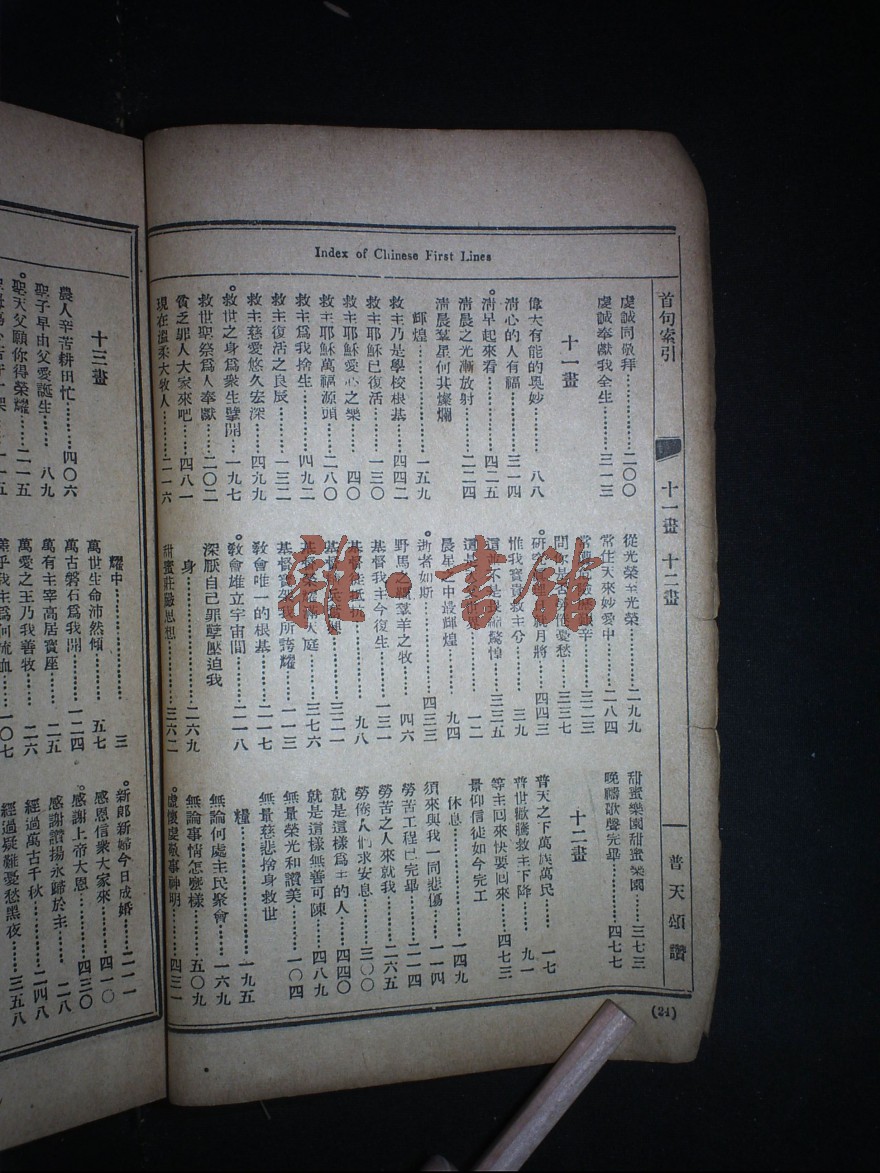 Index of Chinese First Lines
首句索引
十一畫 十二畫
普天頌讚
(24)
虔誠同敬拜………二〇〇
虔誠奉獻我全生……三一三
十一畫
偉大有能的奧妙……八八
清心的人有福………三一四
清早起來看…………四二五
清晨之光漸放射……二二四
清晨羣星何其燦爛
輝煌…………一五九
救主乃是學校根基……四四二
救主耶穌已復活……一三〇
救主耶穌愛心之樂……四〇
救主耶穌萬福源頭……二八〇
救主爲我捨生………四九二
救主復活之良辰……一三二
救主慈愛悠久宏深……四九九
救世之身爲衆生擘開……一九七
救世聖祭爲人奉獻……二〇二
貧乏罪人大家來吧……四八一
現在溫柔大牧人……二一六
從光榮主光榮………二九九
常住天來妙愛中……二八四
三二三
三三七
四四三
惟我寶貴救主兮……三九
三三五
一二
晨星 中最輝煌……九四
逝者如斯…………四三三
野馬之 羣羊之牧……四六
基督我主今復生……一三一
九八
三二一
三七六
基督 我所誇耀……一一三
敎會唯一的根基……二一七
敎會雄立宇宙間……二一八
深厭自己罪孽壓迫我
身……………二六九
甜蜜莊嚴思想………三六二
甜蜜樂園甜蜜樂園……三七三
晚禱歌聲完畢………四七七
十二畫
普天之下萬族萬民……一七
普世歡騰救主下降……九一
等主回來快要回來……四七三
景仰信徒如今完工
休息……………一四九
須來與我一同悲傷……一一四
勞苦工程已完畢……二一四
勞苦之人來就我……二六五
勞倦人們求安息……三〇〇
就是這樣爲主的人……四四〇
就是這樣無善可陳……四八九
無量榮光和讚美……一〇四
無量慈悲捨身救世
糧……………一九五
無論何處主民聚會……一六九
無論事情怎麼樣……五〇九
虛懷虔敬事神明……四三一
十三畫
農人辛苦耕田忙……四〇六
聖子早由父愛誕生……八九
聖天父願你得榮耀……二一五
耀中……………三
萬世生命沛然傾……五七
萬古磐石爲我開……一二四
萬有主宰高居寶座……二五
萬愛之王乃我善牧……二六
一〇七
新郎新婦今日成婚……二一一
感恩信衆大家來……四一〇
感謝上帝大恩………四三〇
感謝讚揚永歸於主……二八
經過萬古千秋………二四八
經過疑難憂愁黑夜……三五八
雜·書館